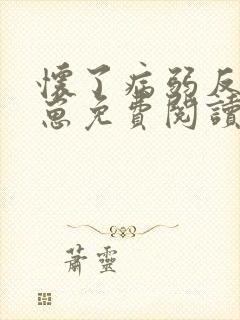 懷了病弱反
崽免費閱讀
蕭靈